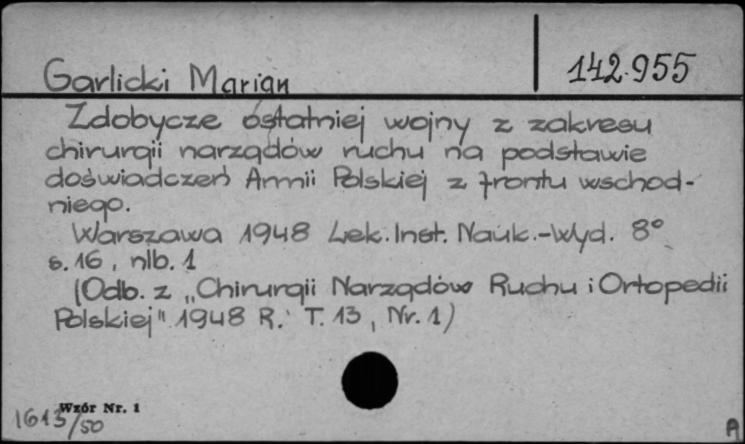 Garlicki Marian
142.955
Zdobycze ostatniej wojny z zakresu
chirurgii narządów ruchu na podstawie
doświadczeń Armii Polskiej z frontu wschod-
niego.
Warszawa 1948 Lek. Inst. Nauk.-Wyd. 8°
s. 16, nlb. 1
(Odb. z „Chirurgii Narządów Ruchu i Ortopedii
Polskiej" 1948 R. T. 13, Nr. 1)
Wzór Nr. 1
1613/50
A